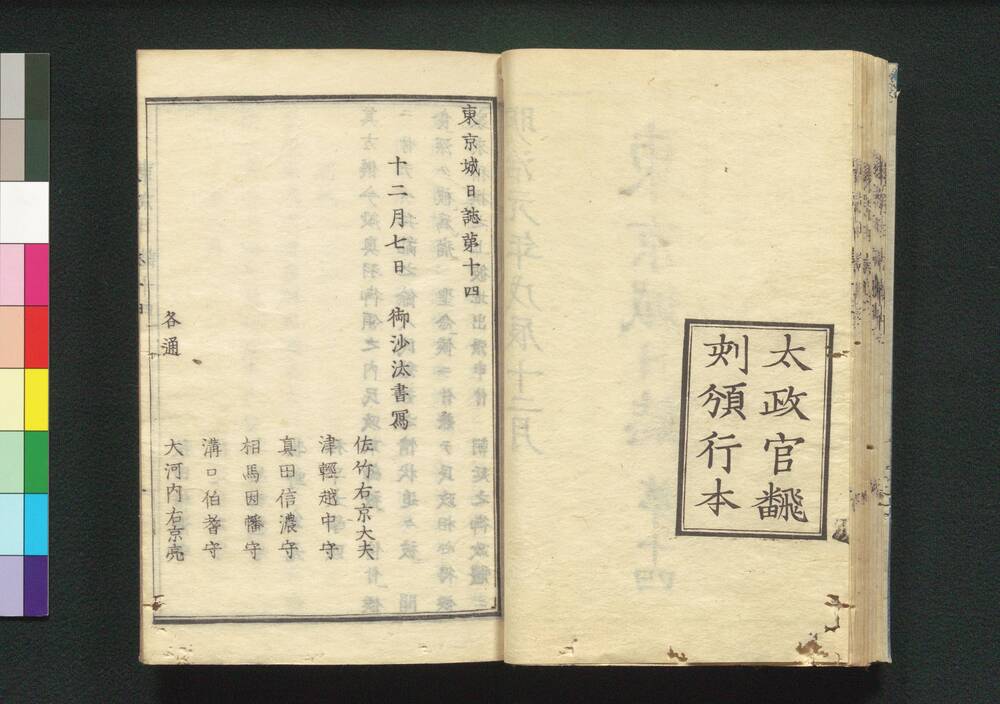 太政官飜
刻頒行本
東京城日誌第十四
十二月七日 御沙汰書冩
佐竹右京大夫
津輕越中守
真田信濃守
相馬因幡守
溝口伯耆守
各通 大河内右京亮